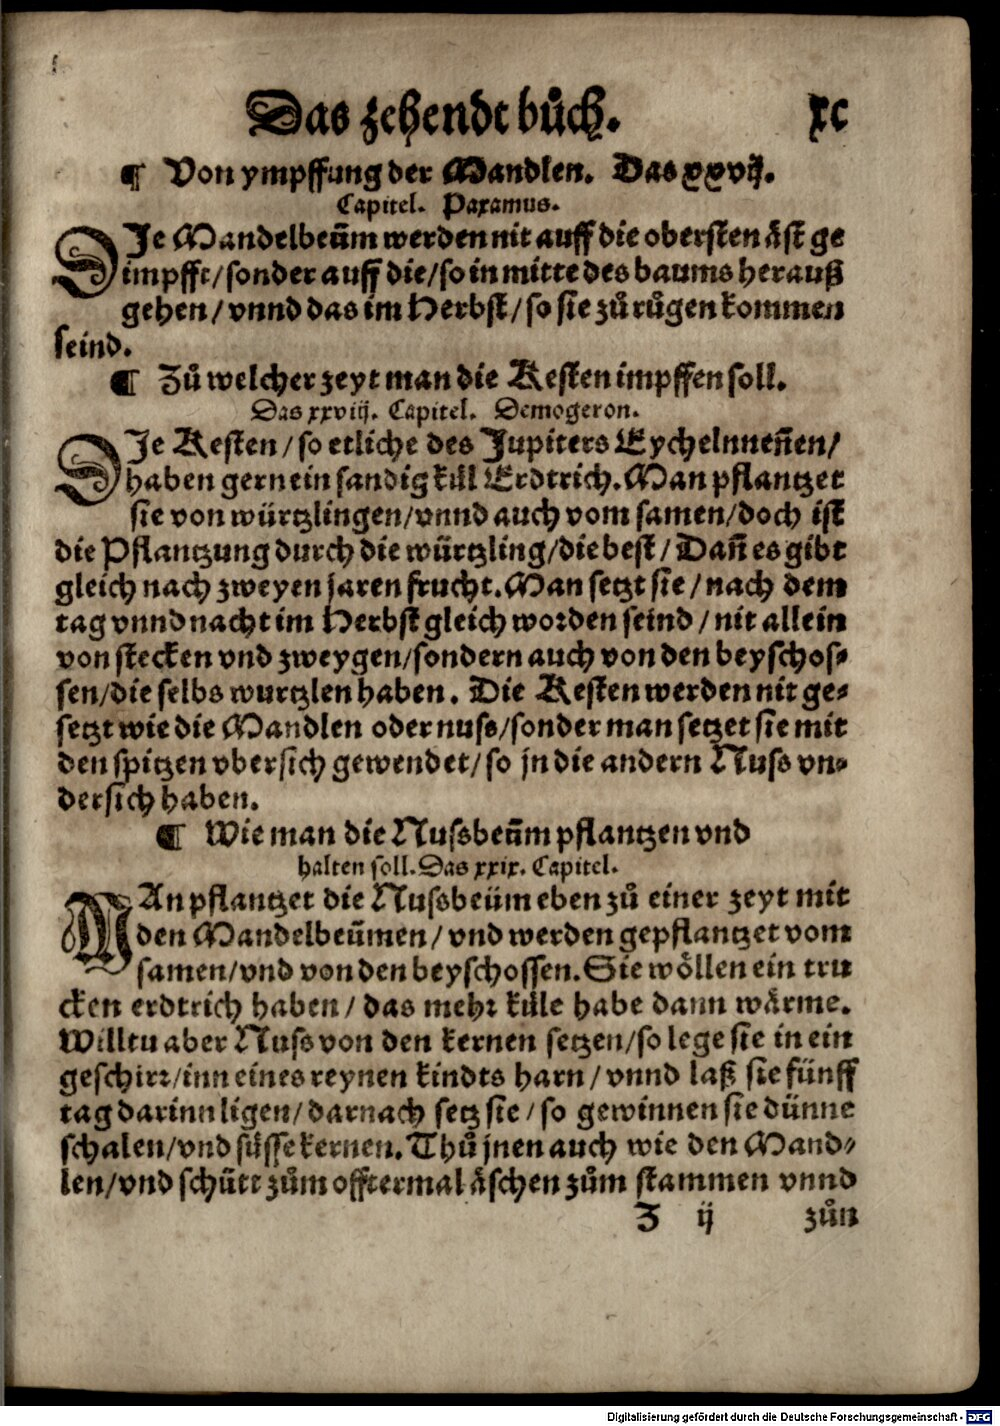 Das zehendt bůch. xc
¶ Von ympffung der Mandlen. Das xxvij.
Capitel. Paxamus.
DIe Mandelbeüm werden nit auff die obersten äst ge
impfft/sonder auff die/so in mitte des baums herauß
gehen/vnnd das im Herbst/so sie zů růgen kommen
seind.
¶ Zů welcher zeyt man die Kesten impffen soll.
Das xxviij. Capitel. Demogeron.
DIe Kesten/so etliche des Jupiters Eycheln nen̄en/
haben gern ein sandig küll Erdtrich. Man pflantzet
sie von würtzlingen/vnnd auch vom samen/doch ist
die Pflantzung durch die würtzling/die best/Dan̄ es gibt
gleich nach zweyen jaren frucht. Man setzt sie/nach dem
tag vnnd nacht im Herbst gleich worden seind/nit allein
von stecken vnd zweygen/sondern auch von den beyschos-
sen/die selbs wurtzlen haben. Die Kesten werden nit ge-
setzt wie die Mandlen oder nuss/sonder man setzet sie mit
den spitzen vbersich gewendet/so jn die andern Nuss vn-
dersich haben.
¶ Wie man die Nussbeüm pflantzen vnd
halten soll. Das xxix. Capitel.
MAn pflantzet die Nussbeüm eben zů einer zeyt mit
den Mandelbeümen/vnd werden gepflantzet vom
samen/vnd von den beyschossen. Sie wöllen ein tru
cken erdtrich haben/das mehr küle habe dann wärme.
Willtu aber Nuss von den kernen setzen/so lege sie in ein
geschirr/inn eines reynen kindts harn/vnnd laß sie fünff
tag darinn ligen/darnach setz sie/so gewinnen sie dünne
schalen/vnd süsse kernen. Thů jnen auch wie den Mand-
len/vnd schütt zům offtermal äschen zům stammen vnnd
Z ij zůn
Digitalisierung gefördert durch die Deutsche Forschungsgemeinschaft - DFG